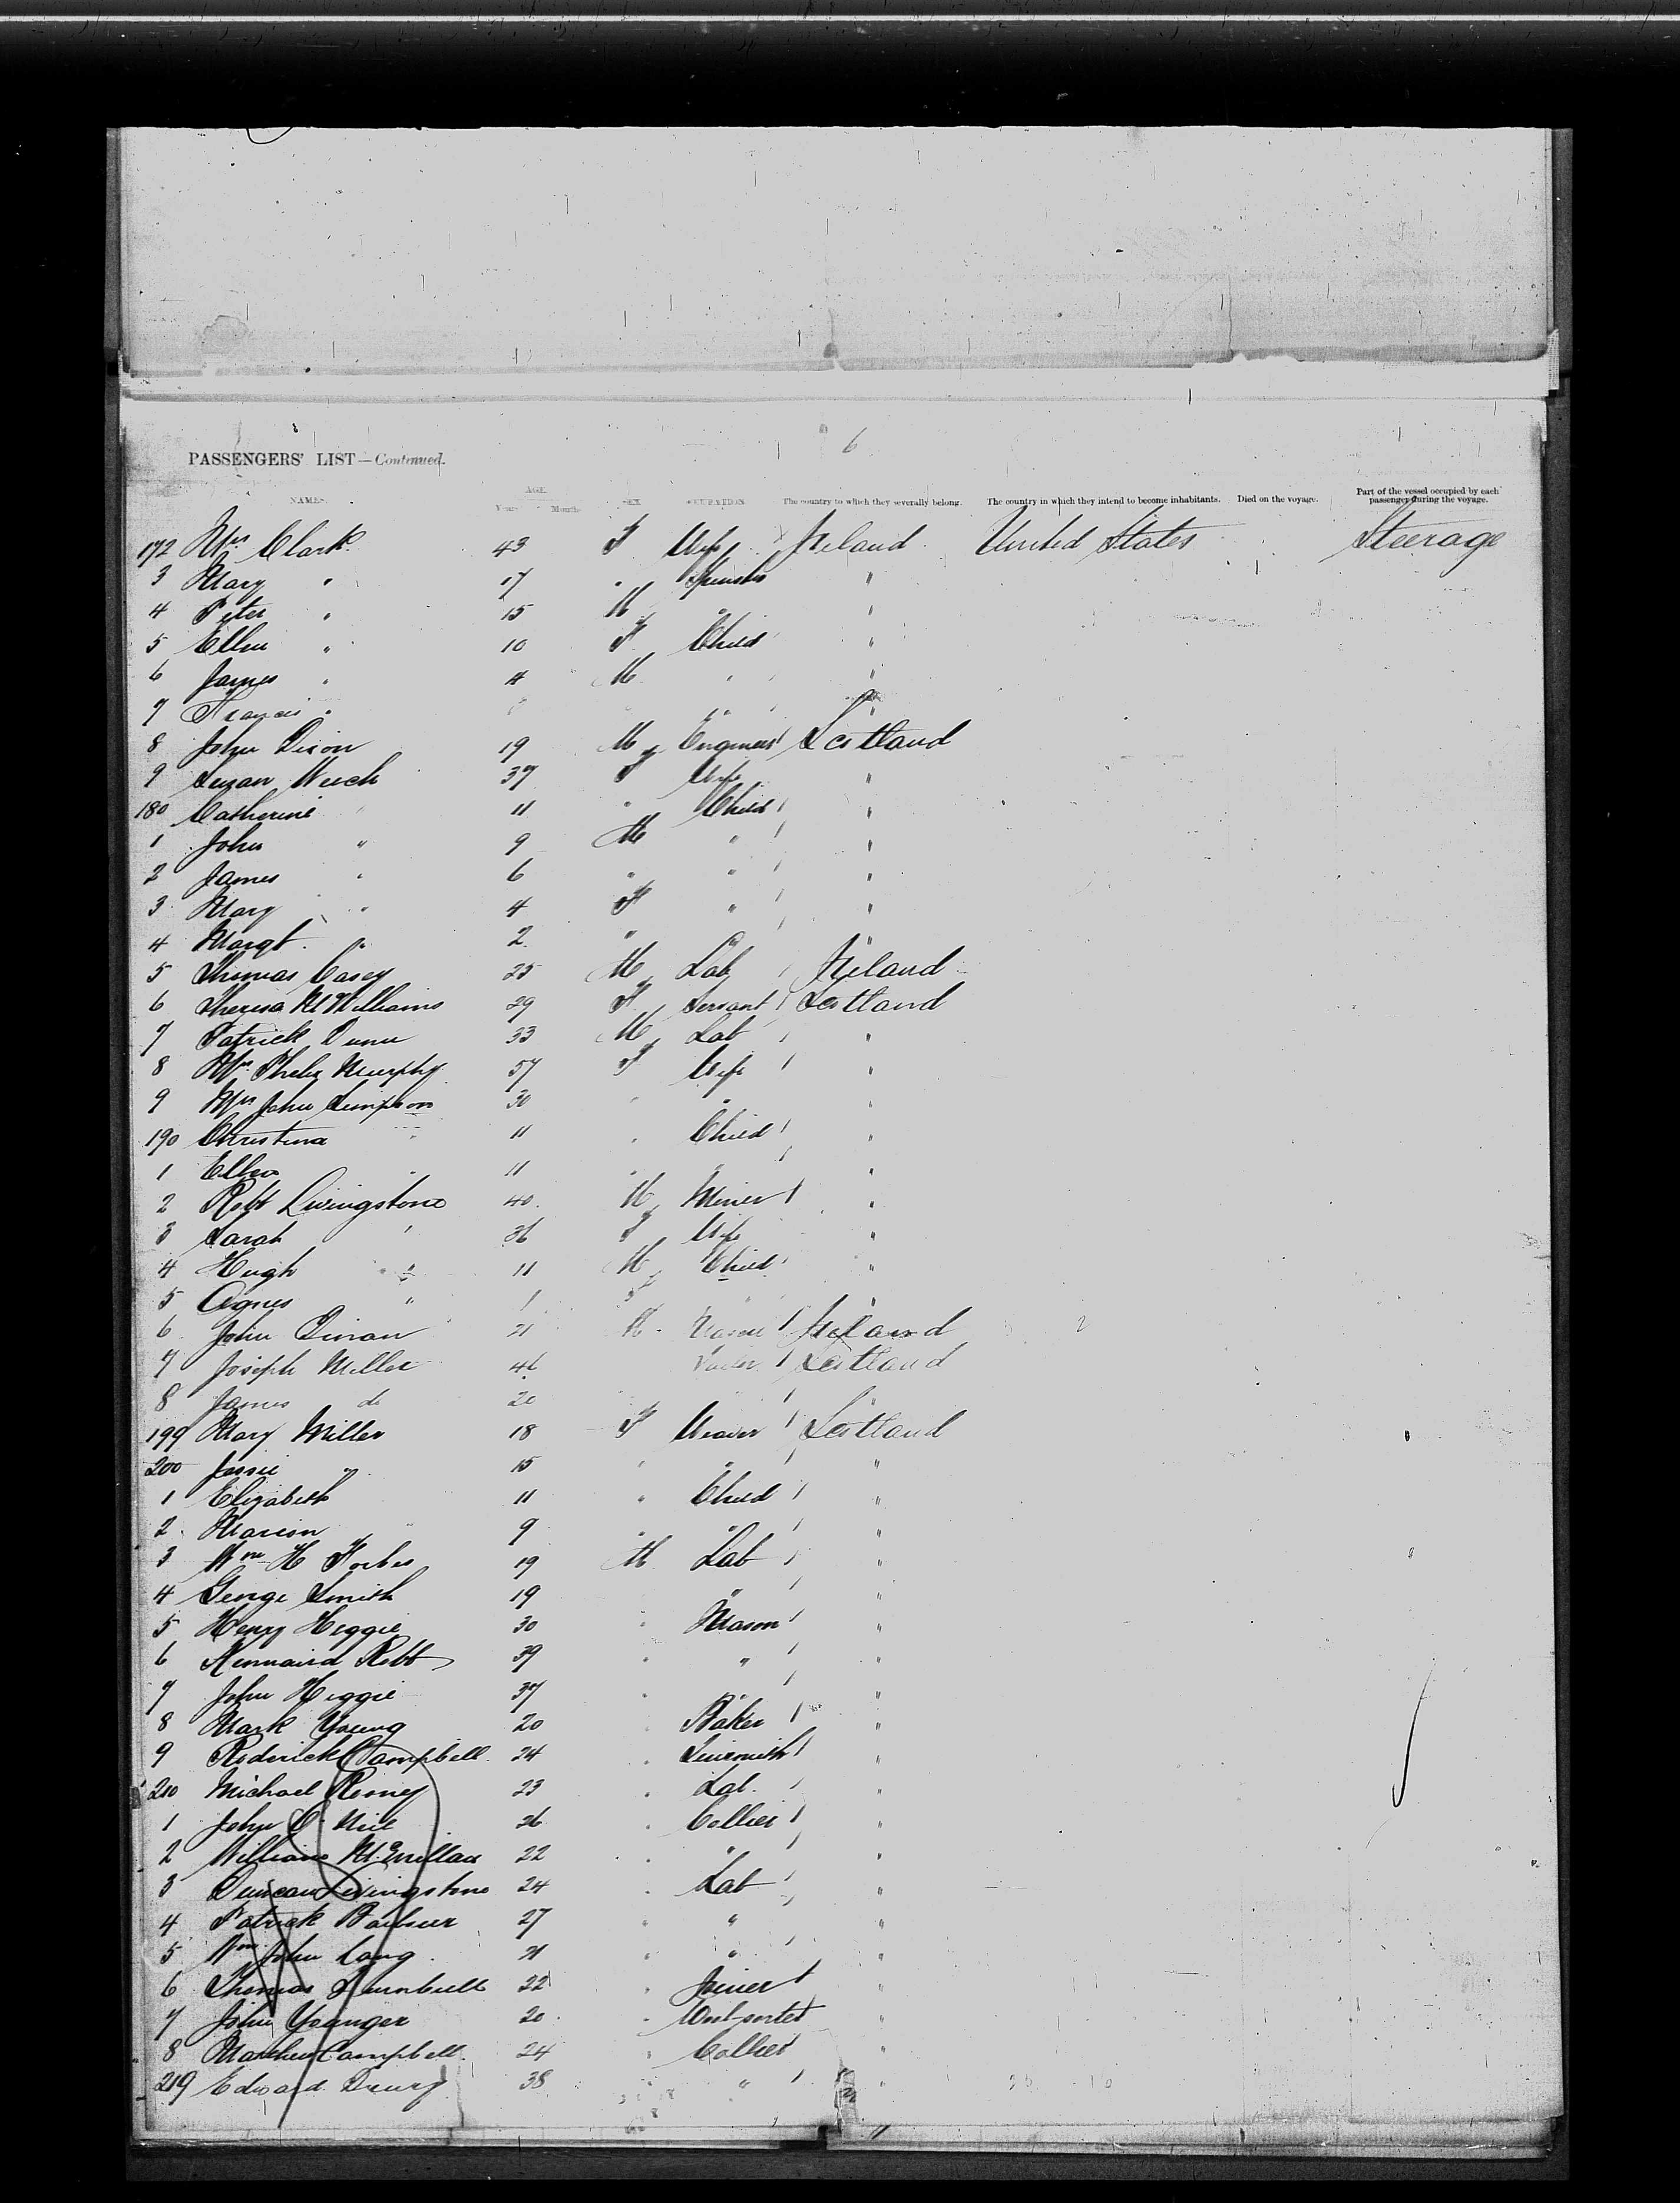 6
PASSENGERS' LIST—Continued.
NAMES. AGE. Years. Months. SEX. OCCUPATION. The country to which they severally belong. The country in which they intend to become inhabitants. Died on the voyage. Part of the vessel occupied by each passenger during the voyage.
172 Mrs Clark 43 F Wife Ireland United States Steerage
3 Mary " 17 " Spinster "
4 Peter " 15 M " "
5 Ellen " 10 F Child "
6 James " 4 M " "
7 Francis " " "
8 John Dixon 19 M Engineer Scotland
9 Susan Welch 37 F Wife "
180 Catherine " 11 " Child "
1 John " 9 M " "
2 James " 6 " " "
3 Mary " 4 F " "
4 Margt. " 2 " " "
5 Thomas Casey 25 M Lab Ireland
6 Theresa McWilliams 29 F Servant Scotland
7 Patrick Dunn 33 M Lab "
8 Mrs Murphy 57 F Wife "
9 Mrs John Simpson 30 " " "
190 Christina " 11 " Child "
1 Ellen " 11 " " "
2 Robt Livingstone 40 M Miner "
3 Sarah " 36 F Wife "
4 Hugh " 11 M Child "
5 Agnes " 1 F " "
6 John 21 M Mason Ireland
7 Joseph Miller Scotland
8 James do 20 "
199 Mary Miller 18 F Weaver Scotland
200 Jessie " 15 " " "
1 Elizabeth 11 " Child "
2 Marion " 9 " " "
3 Wm H Forbes 19 M Lab "
4 George Smith 19 " "
5 Henry Heggie 30 " Mason "
6 Kinnaird Robt 39 " " "
7 John Heggie 37 " " "
8 Mark Young 20 " Baker "
9 Roderick Campbell 24 " Tinsmith "
210 Michael 23 " Lab. "
1 John O'Neil 26 " Collier "
2 William McMillan 22 " " "
3 Duncan Livingstone 24 " Lab "
4 Patrick 27 " " "
5 Wm John Lang 21 " " "
6 Thomas Turnbull 22 " Joiner "
7 John Younger 20 " "
8 Mathew Campbell 24 " Collier "
219 Edward Drury 38 " " "